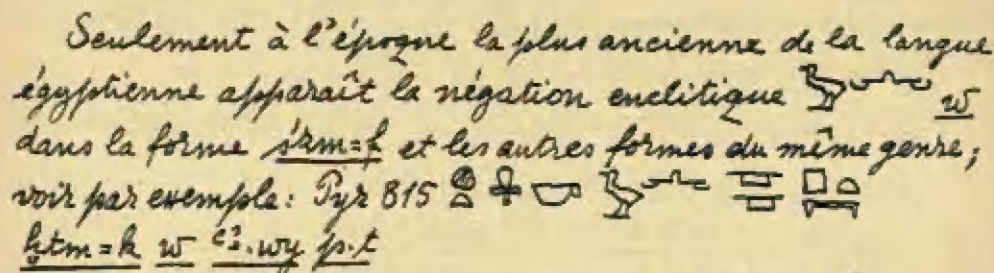 Seulement à l'époque la plus ancienne de la langue
égyptienne apparaît la négation enclitique 𓅱𓂜 w
dans la forme śḏm=f et les autres formes du même genre;
voir par exemple: Pyr 815 𓎡 𓅱𓂜 𓊪𓏏𓇯
ḫtm=k w ꜥꜣ.wy p.t